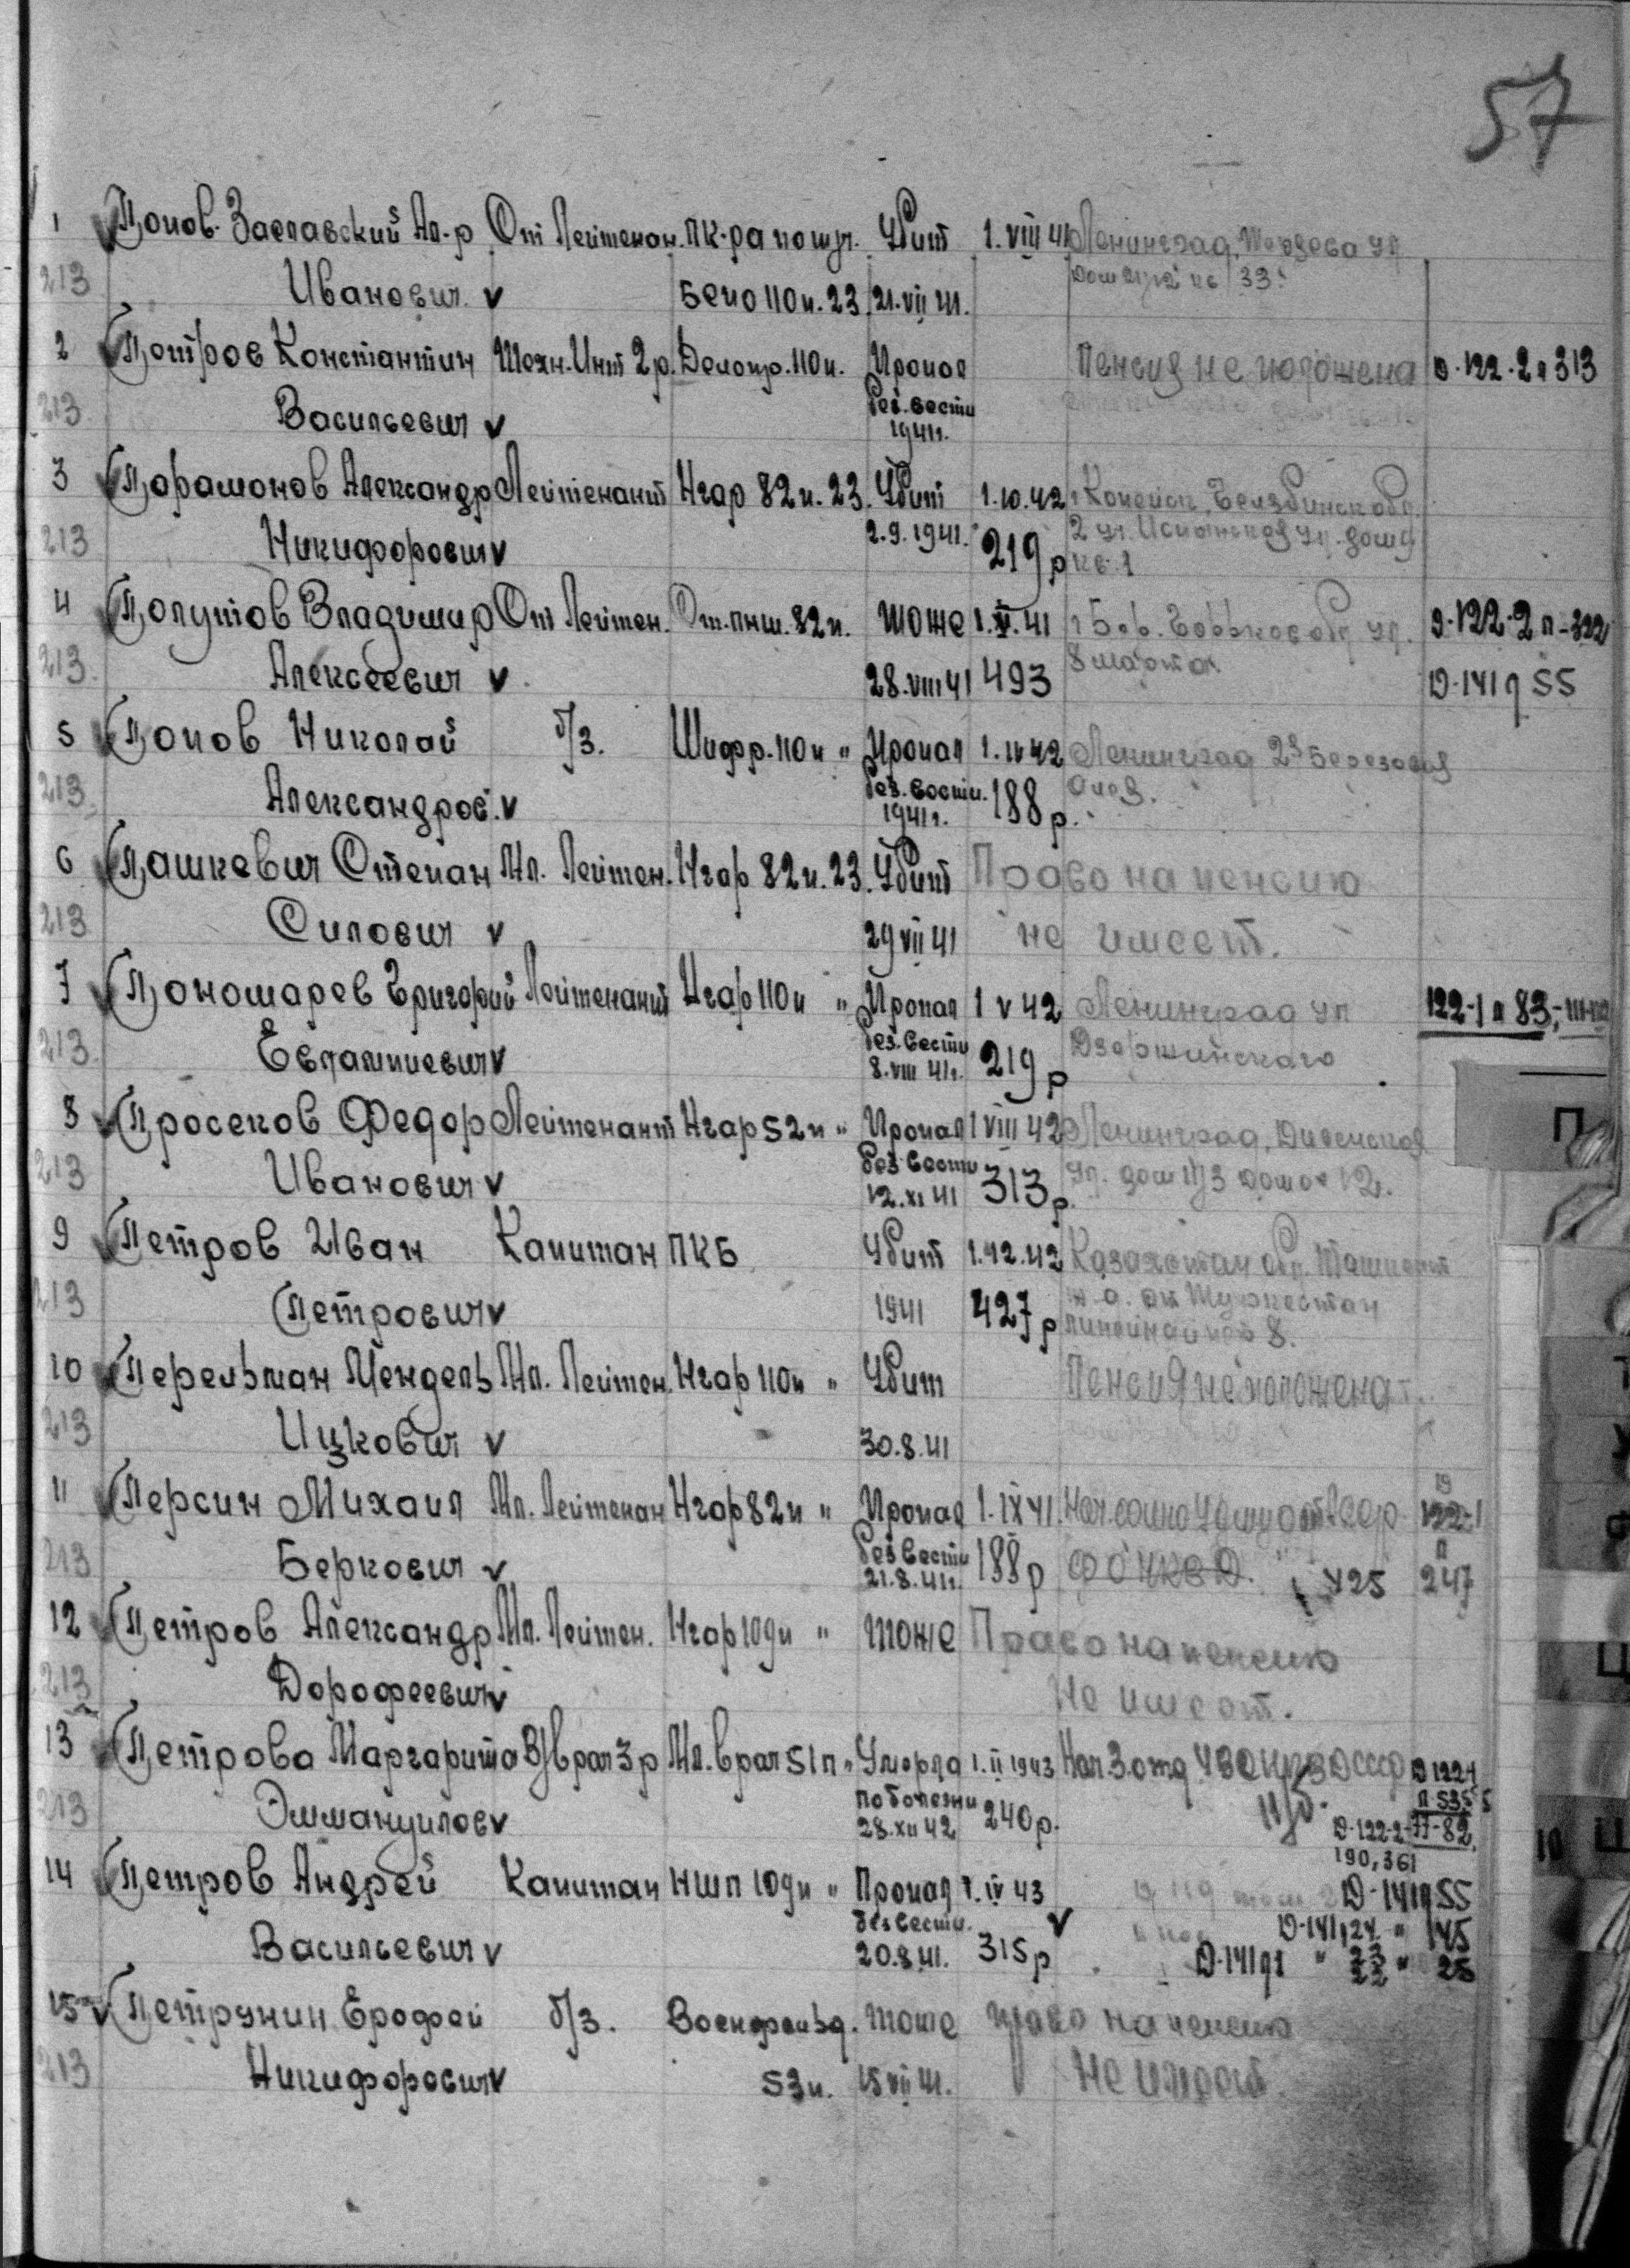 57
1 Попов-Заславский Ал-р Ст Лейтенан. ПК-ра по тыл. Убит 1.VIII 41 Ленинград,
213 Иванович БЕПО 110 п. 23 21.VII 41. дом 21/2 кв 33.
2 Петров Константин Техн. Инт 2 р. Делопр. 110 п. Пропал Пенсия не положена О-122-2 л 313
213 Васильевич без. вести
1941 г.
3 Парамонов Александр Лейтенант Нгар 82 п. 23. Убит 1.10.42 г Копейск, Челябинск обл.
213 Никифорович 2.9.1941. 219 р 2 уч. Испанская ул. дом 9
кв. 1
4 Полутов Владимир Ст Лейтен. Ст. пнш. 82 п. тоже 1.X.41 г Бор. Горьковс обл ул. О-122-2 л-322
213 Алексеевич 28.VIII 41 493 8 марта О-141 д 55
5 Попов Николай б/з. Шифр. 110 п " Пропал 1.IV 42 Ленинград 2я Березовая
213 Александров. без. вести. 188 р. аллея.
1941 г.
6 Пашкевич Степан Мл. Лейтен. Нгар 82 п. 23. Убит Право на пенсию
213 Силович 29 VII 41 не имеет.
7 Пономарев Григорий Лейтенант Нгар 110 п " Пропал 1 V 42 Ленинград ул 122-1 л 83,
213 Евлампиевич без. вести 219 р Дзержинского
8.VIII 41 г.
8 Просеков Федор Лейтенант Нгар 52 п " Пропал 1 VIII 42 Ленинград, Дивенская
213 Иванович без вести 313 р. ул. дом 11/3 12.
12.XI 41
9 Петров Иван Капитан ПКБ Убит 1.12.42 Казахстан Ташкент
213 Петрович 1941 427 р ж.д. ст Туркестан
линейная 8.
10 Перельман Мендель Мл. Лейтен. Нгар 110 п " Убит Пенсия не положена
213 Ицкович 30.8.41
11 Персин Михаил Мл. Лейтенан Нгар 82 п " Пропал 1.IX 41. О 122-1
213 Беркович без вести 188 р ФО НКВД. У25 л 247
21.8.41 г.
12 Петров Александр Мл. Лейтен. Нгар 109 п " тоже Право на пенсию
213 Дорофеевич не имеет.
13 Петрова Маргарита В/врач 3 р Мл. врач 51 п " Умерла 1.II 1943 Нач. 3 отд О 122-1
213 Эммануилов по болезни 240 р. л 535
28.XII 42 О-122-2-77-82
190, 361
14 Петров Андрей Капитан НШП 109 п " Пропал 1.IV 43 О-141 д 55
213 Васильевич без вести. 315 р О-141 д 24 " 145
20.8.41. О-141 д 1 " 23 22 " 25
15 Петрунин Ерофей б/з. Военфельд. тоже право на пенсию
213 Никифорович 53 п. 15 VII 41. не имеет.
П
Ц
10